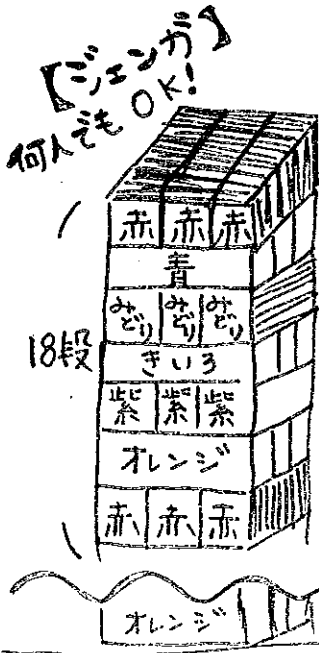 【ジェンガ】
何人でもOK!
赤 赤 赤
青
みどり みどり みどり
18段
きいろ
紫 紫 紫
オレンジ
赤 赤 赤
オレンジ